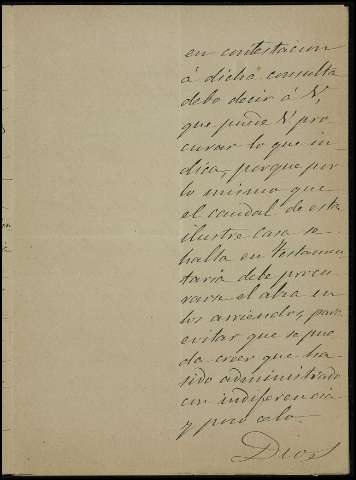 en contestacion
á dicha consulta
debo decir á V,
que puede V pro
curar lo que in-
dica, porque por
lo mismo que
el caudal de esta
ilustre casa se
halla en testamen-
taria debe procu
rarse el alza en
los arriendos, para
evitar que se pue
da creer que ha
sido administrado
con indiferencia
y poco celo.
Dios